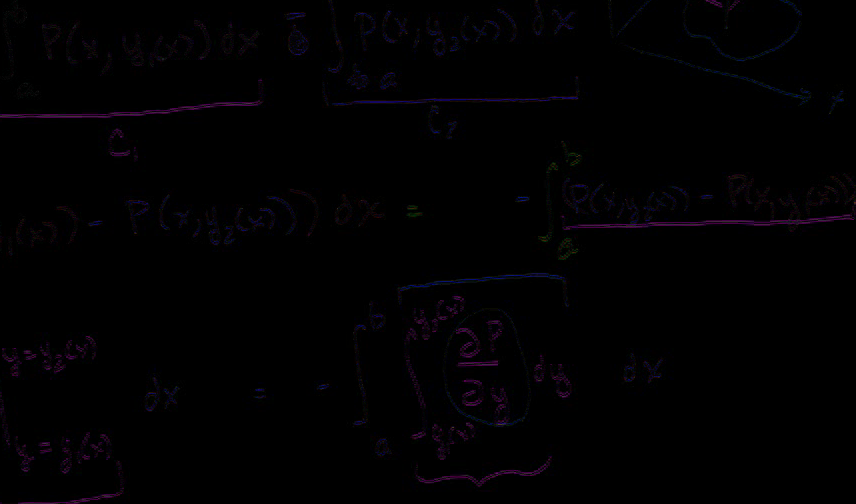 ∫ₐᵇ P(x, y₁(x)) dx − ∫ₐ P(x, y₂(x)) dx
x
C₁ C₂
₁(x)) − P(x, y₂(x))) dx = − ∫ₐᵇ (P(x, y₂(x)) − P(x, y₁(x)))
y = y₂(x)
y = y₁(x)
dx = − ∫ₐᵇ ∫_{y₁(x)}^{y₂(x)} ∂P/∂y dy dx